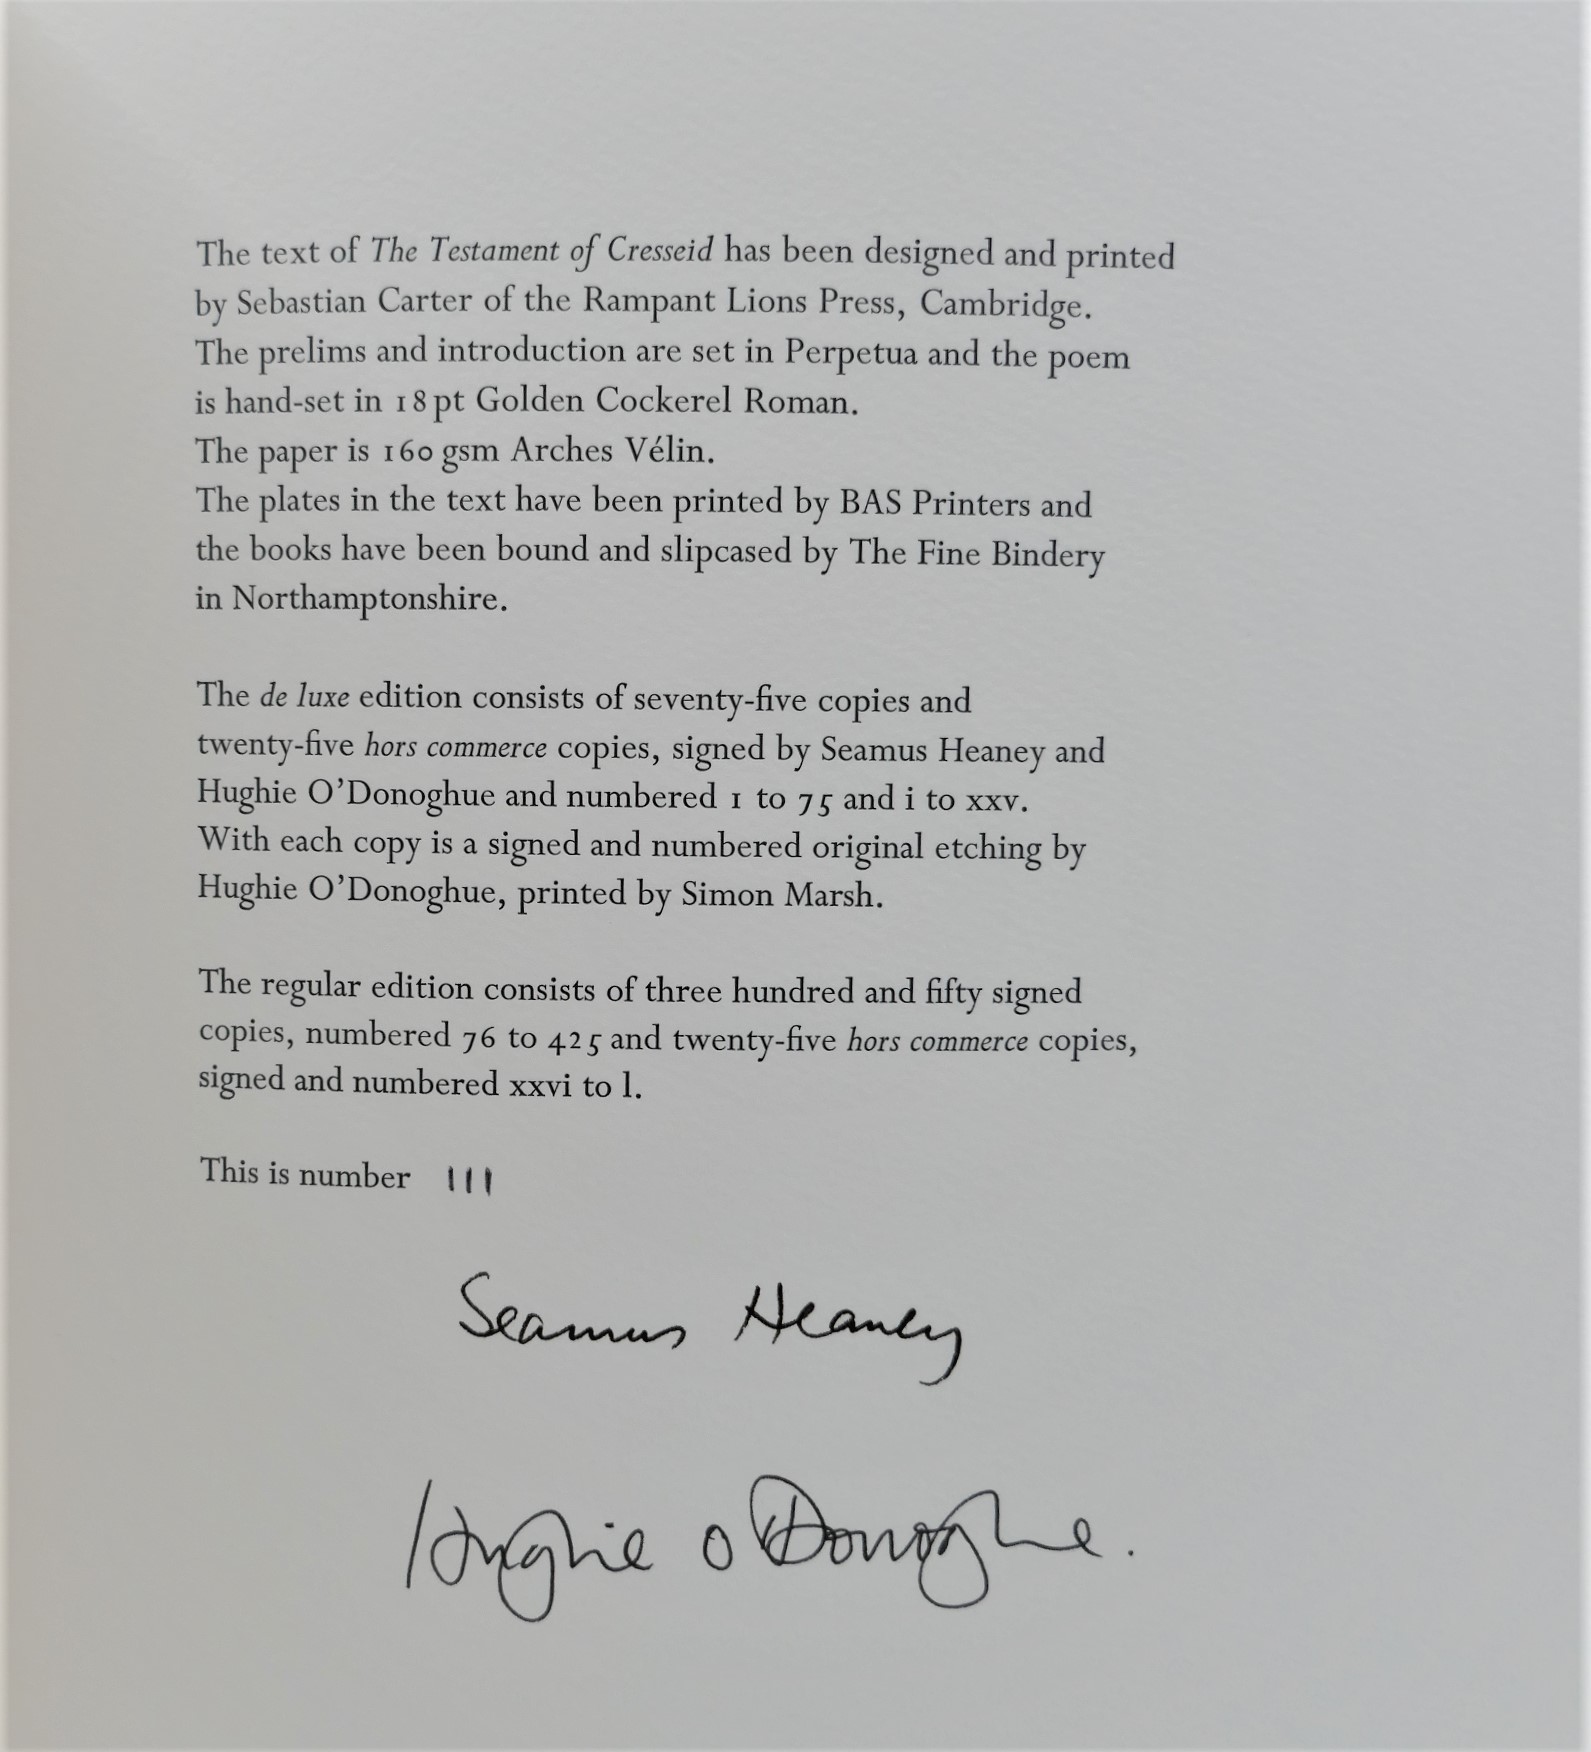 The text of The Testament of Cresseid has been designed and printed
by Sebastian Carter of the Rampant Lions Press, Cambridge.
The prelims and introduction are set in Perpetua and the poem
is hand-set in 18 pt Golden Cockerel Roman.
The paper is 160 gsm Arches Vélin.
The plates in the text have been printed by BAS Printers and
the books have been bound and slipcased by The Fine Bindery
in Northamptonshire.
The de luxe edition consists of seventy-five copies and
twenty-five hors commerce copies, signed by Seamus Heaney and
Hughie O'Donoghue and numbered 1 to 75 and i to xxv.
With each copy is a signed and numbered original etching by
Hughie O'Donoghue, printed by Simon Marsh.
The regular edition consists of three hundred and fifty signed
copies, numbered 76 to 425 and twenty-five hors commerce copies,
signed and numbered xxvi to l.
This is number 111
Seamus Heaney
Hughie O'Donoghue.